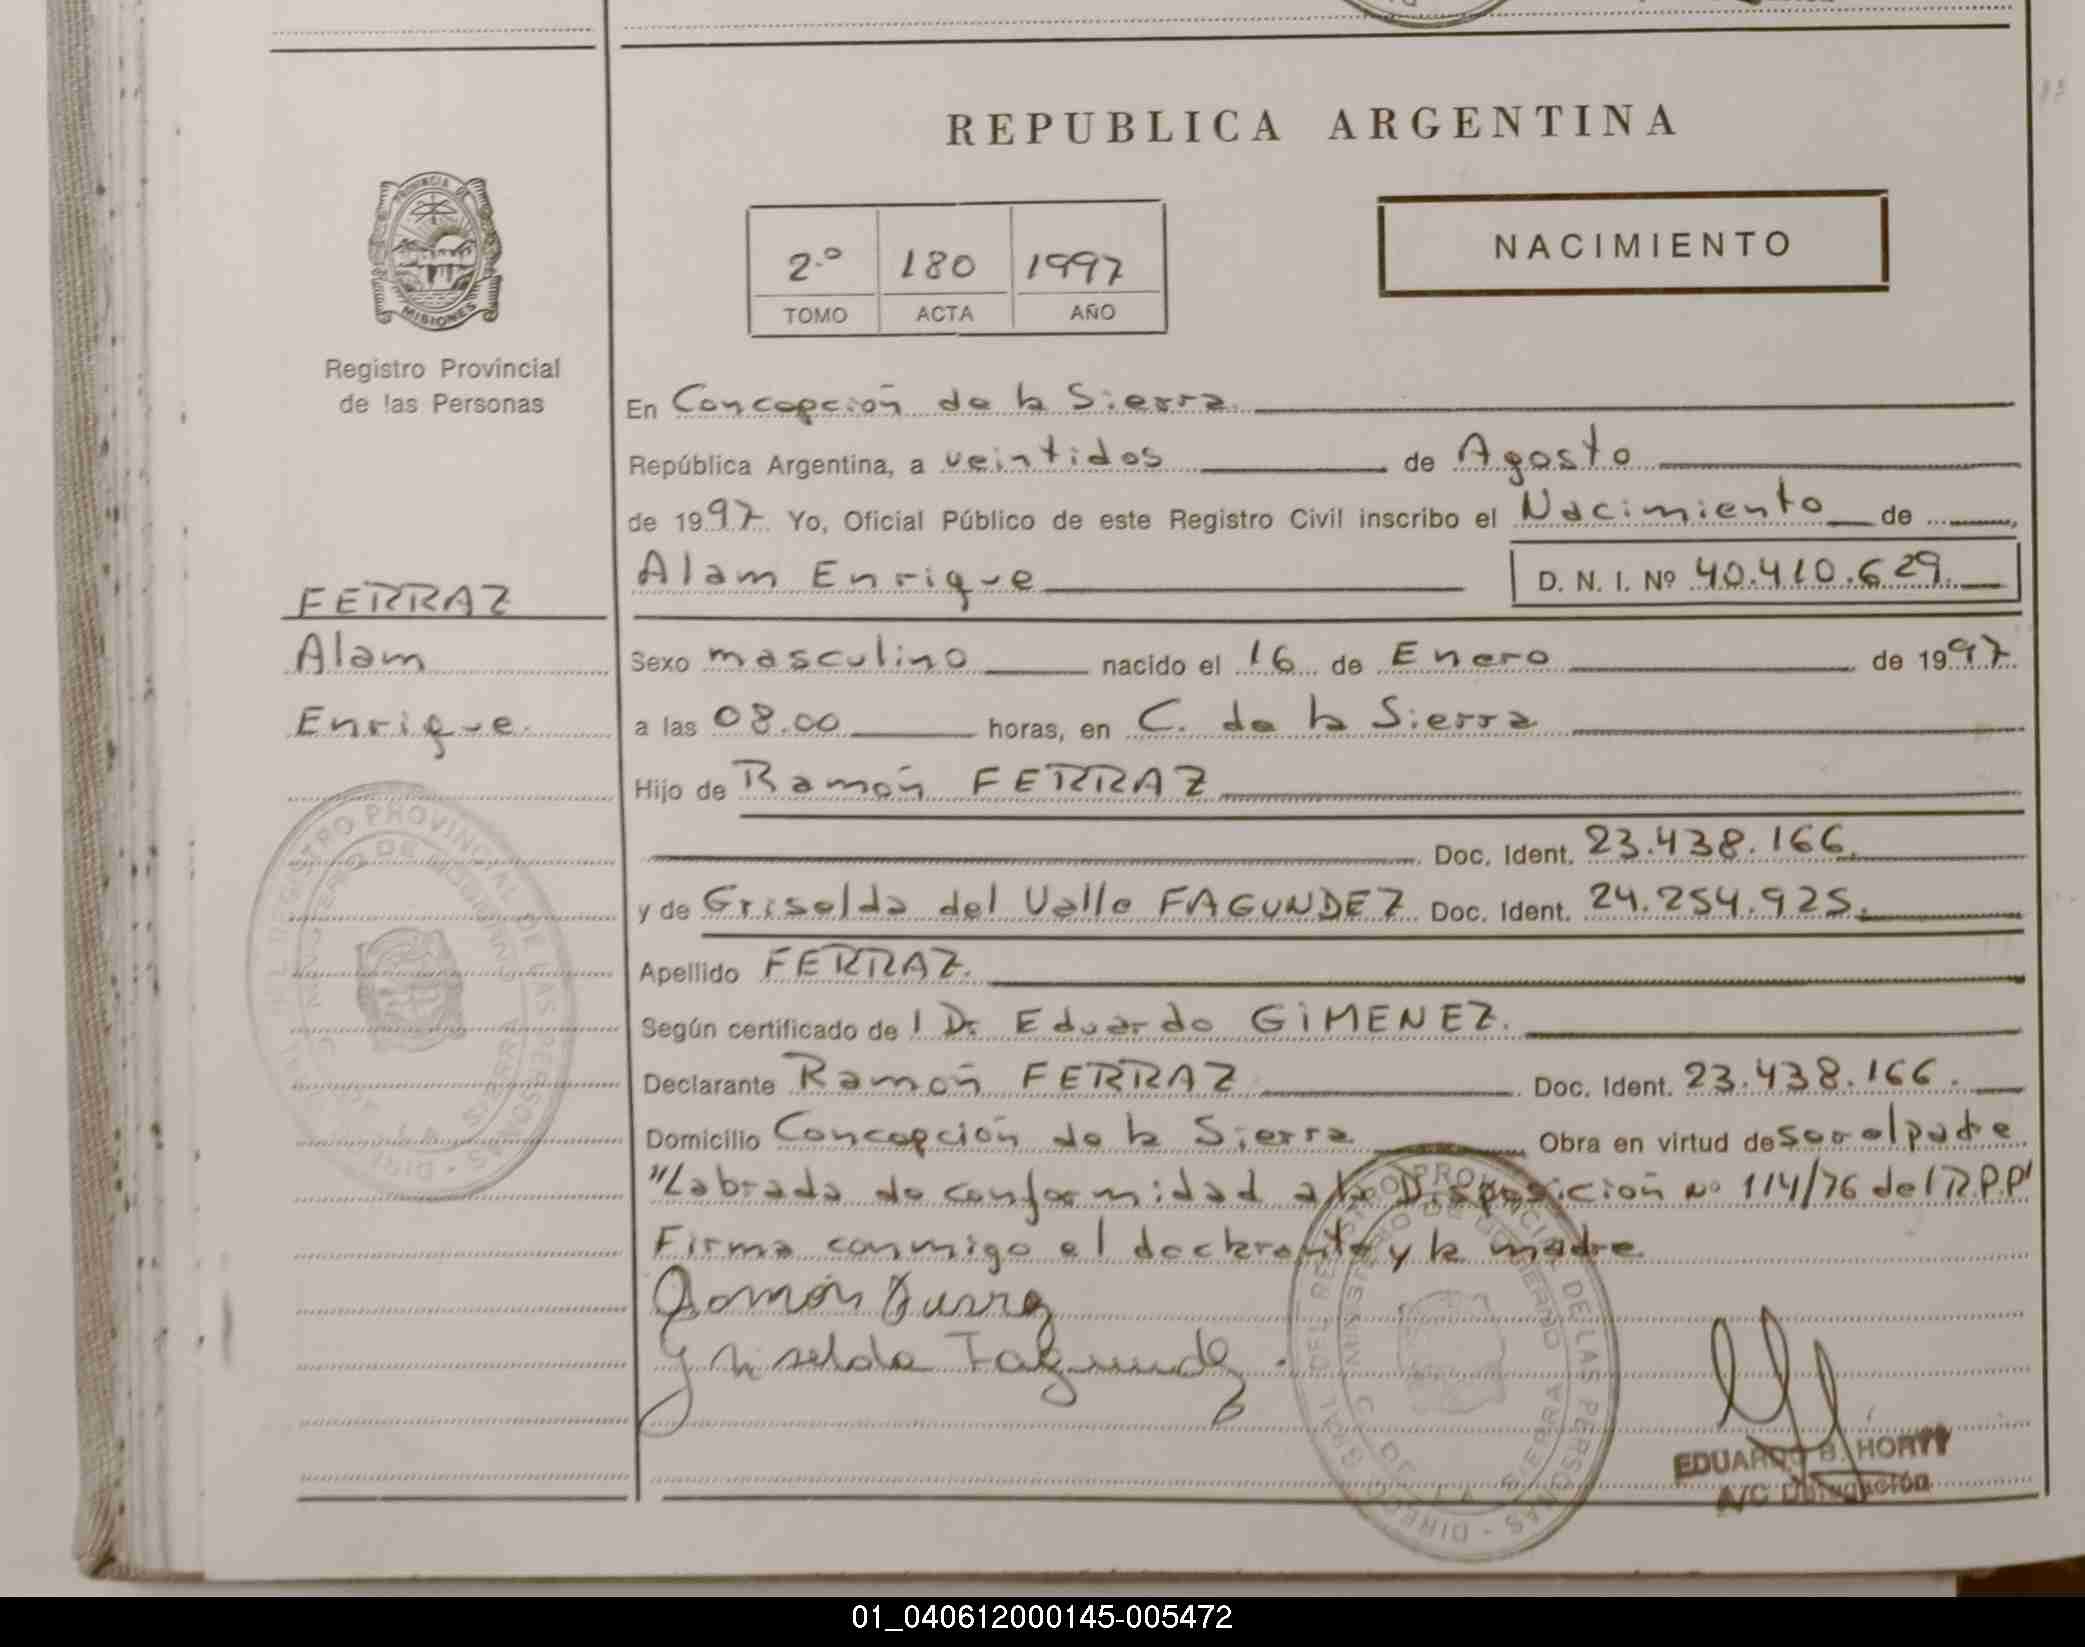 REPUBLICA ARGENTINA
PROVINCIA DE
MISIONES
Registro Provincial
de las Personas
2.º 180 1997
TOMO ACTA AÑO
NACIMIENTO
En Concepción de la Sierra
República Argentina, a veintidos de Agosto
de 1997 Yo, Oficial Público de este Registro Civil inscribo el Nacimiento de
Alam Enrique D. N. I. Nº 40.410.629.
FERRAZ
Alam
Enrique.
Sexo masculino nacido el 16 de Enero de 1997
a las 08.00 horas, en C. de la Sierra
Hijo de Ramón FERRAZ
Doc. Ident. 23.438.166.
y de Griselda del Valle FAGUNDEZ Doc. Ident. 24.254.925.
Apellido FERRAZ.
Según certificado de l Dr Eduardo GIMENEZ.
Declarante Ramón FERRAZ Doc. Ident. 23.438.166.
Domicilio Concepción de la Sierra Obra en virtud de ser el padre
"Labrada de conformidad a la Disposición Nº 114/76 del R.P.P"
Firma conmigo el declarante y la madre
Ramón
Griselda Fagundez.
EDUARDO B. HORTT
A/C Delegación
DIRECC GRAL DEL REGISTRO PROVINCIAL DE LAS PERSONAS
MINISTERIO DE GOBIERNO
C. DE LA SIERRA
01_040612000145-005472